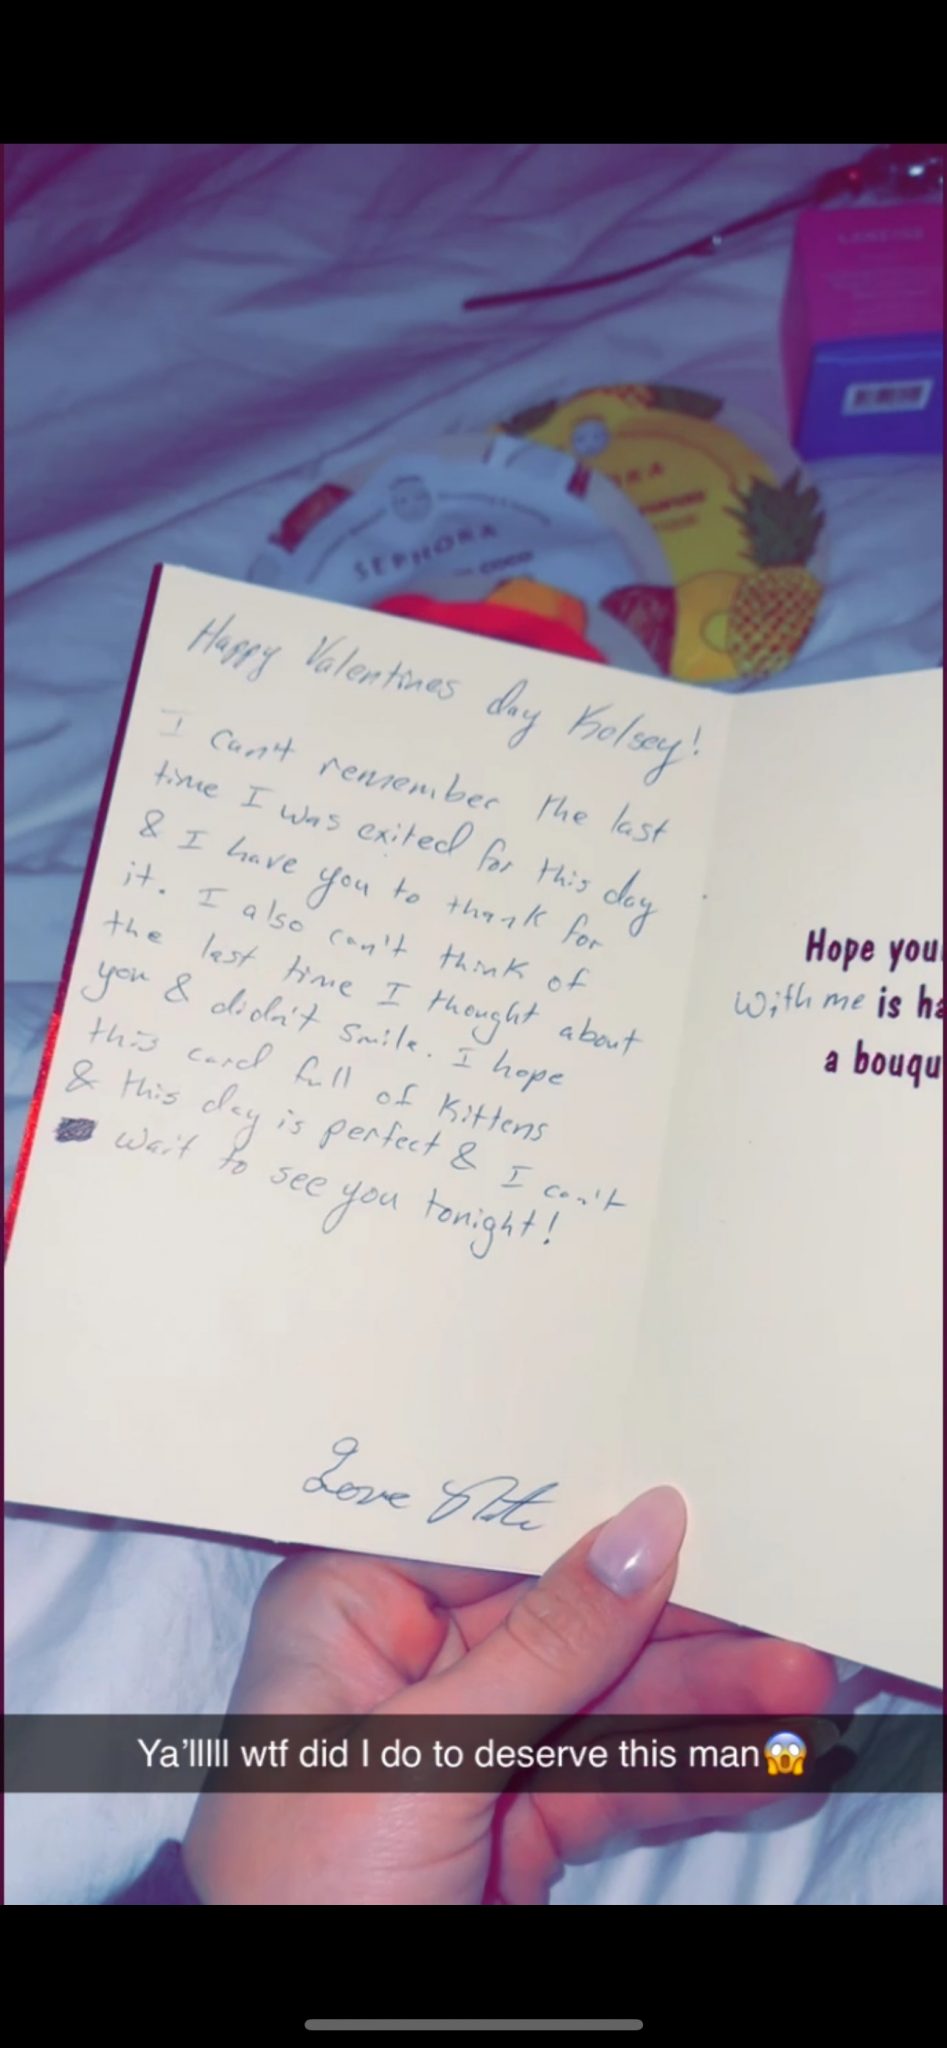 LANEIGE
SEPHORA
COCO
Happy Valentines day Kelsey!
I can't remember the last
time I was exited for this day
& I have you to thank for
it. I also can't think of
the last time I thought about
you & didn't smile. I hope
this card full of kittens
& this day is perfect & I can't
wait to see you tonight!
Love
Hope you
with me is ha
a bouqu
Ya'lllll wtf did I do to deserve this man😱